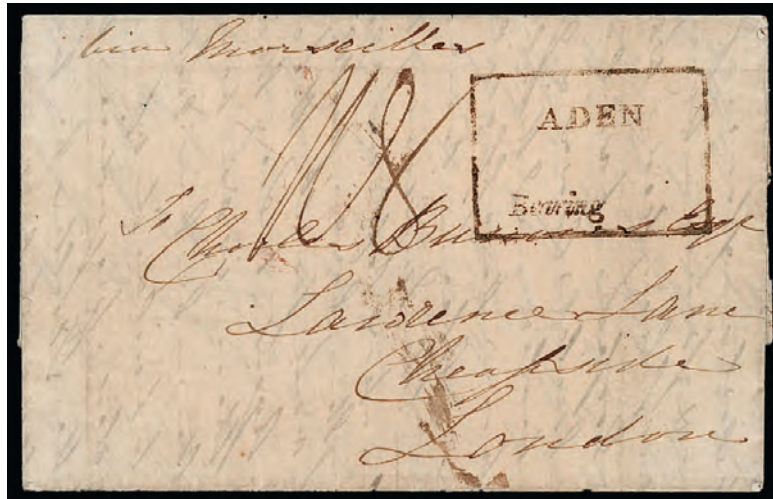 via Marseilles
1/8
ADEN
Bearing
To Charles Esqr
Lawrence Lane
Cheapside
London